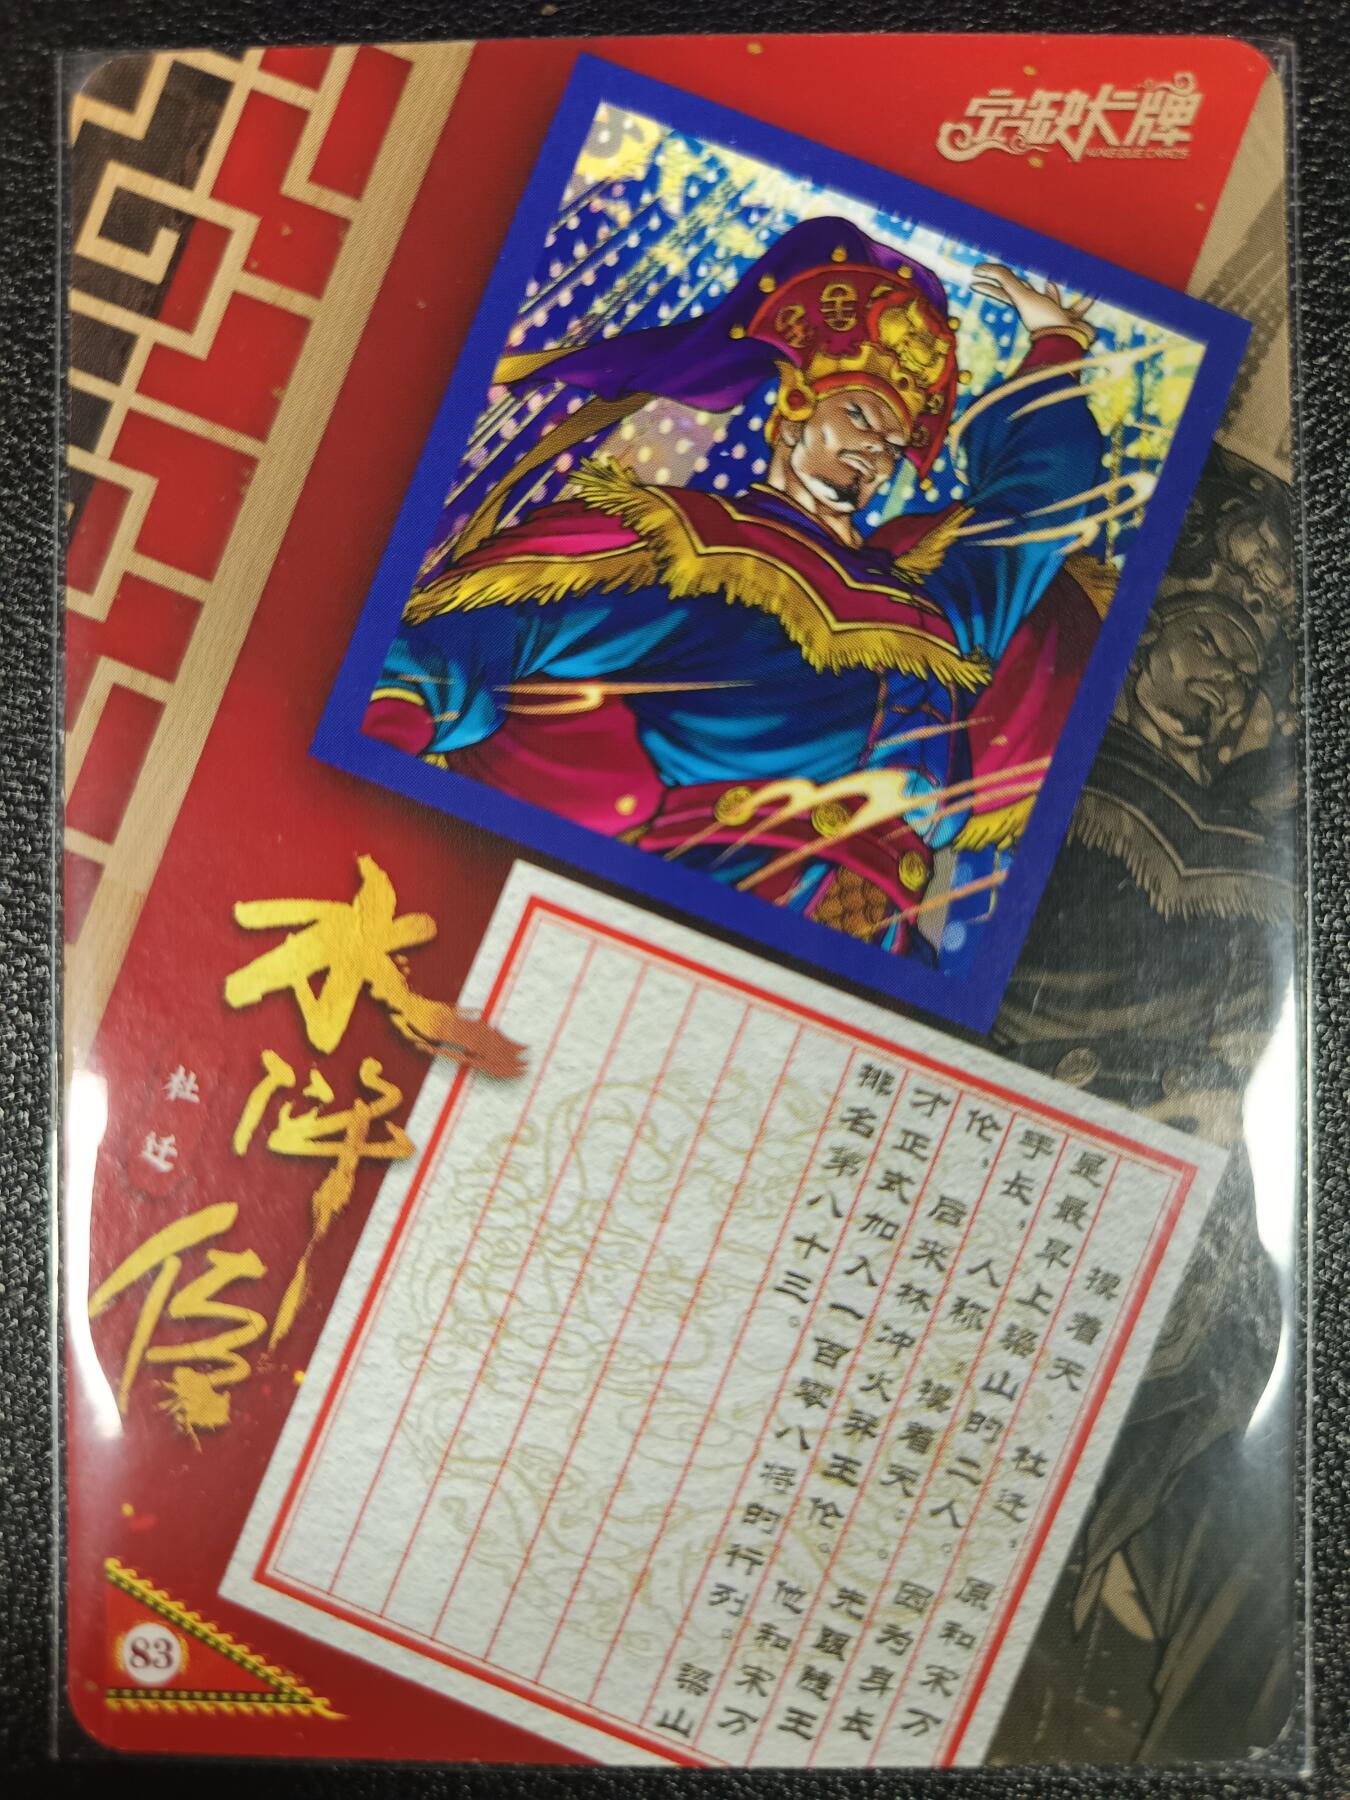 宁缺大牌
NINGQUE CARDS
水浒传
杜迁
摸着天·杜迁，原和宋万
是最早上梁山的二人。因为身长
手长，人称“摸着天”。先跟随王
伦，后来林冲火并王伦。他和宋万
才正式加入一百零八将的行列。梁山
排名第八十三。
83